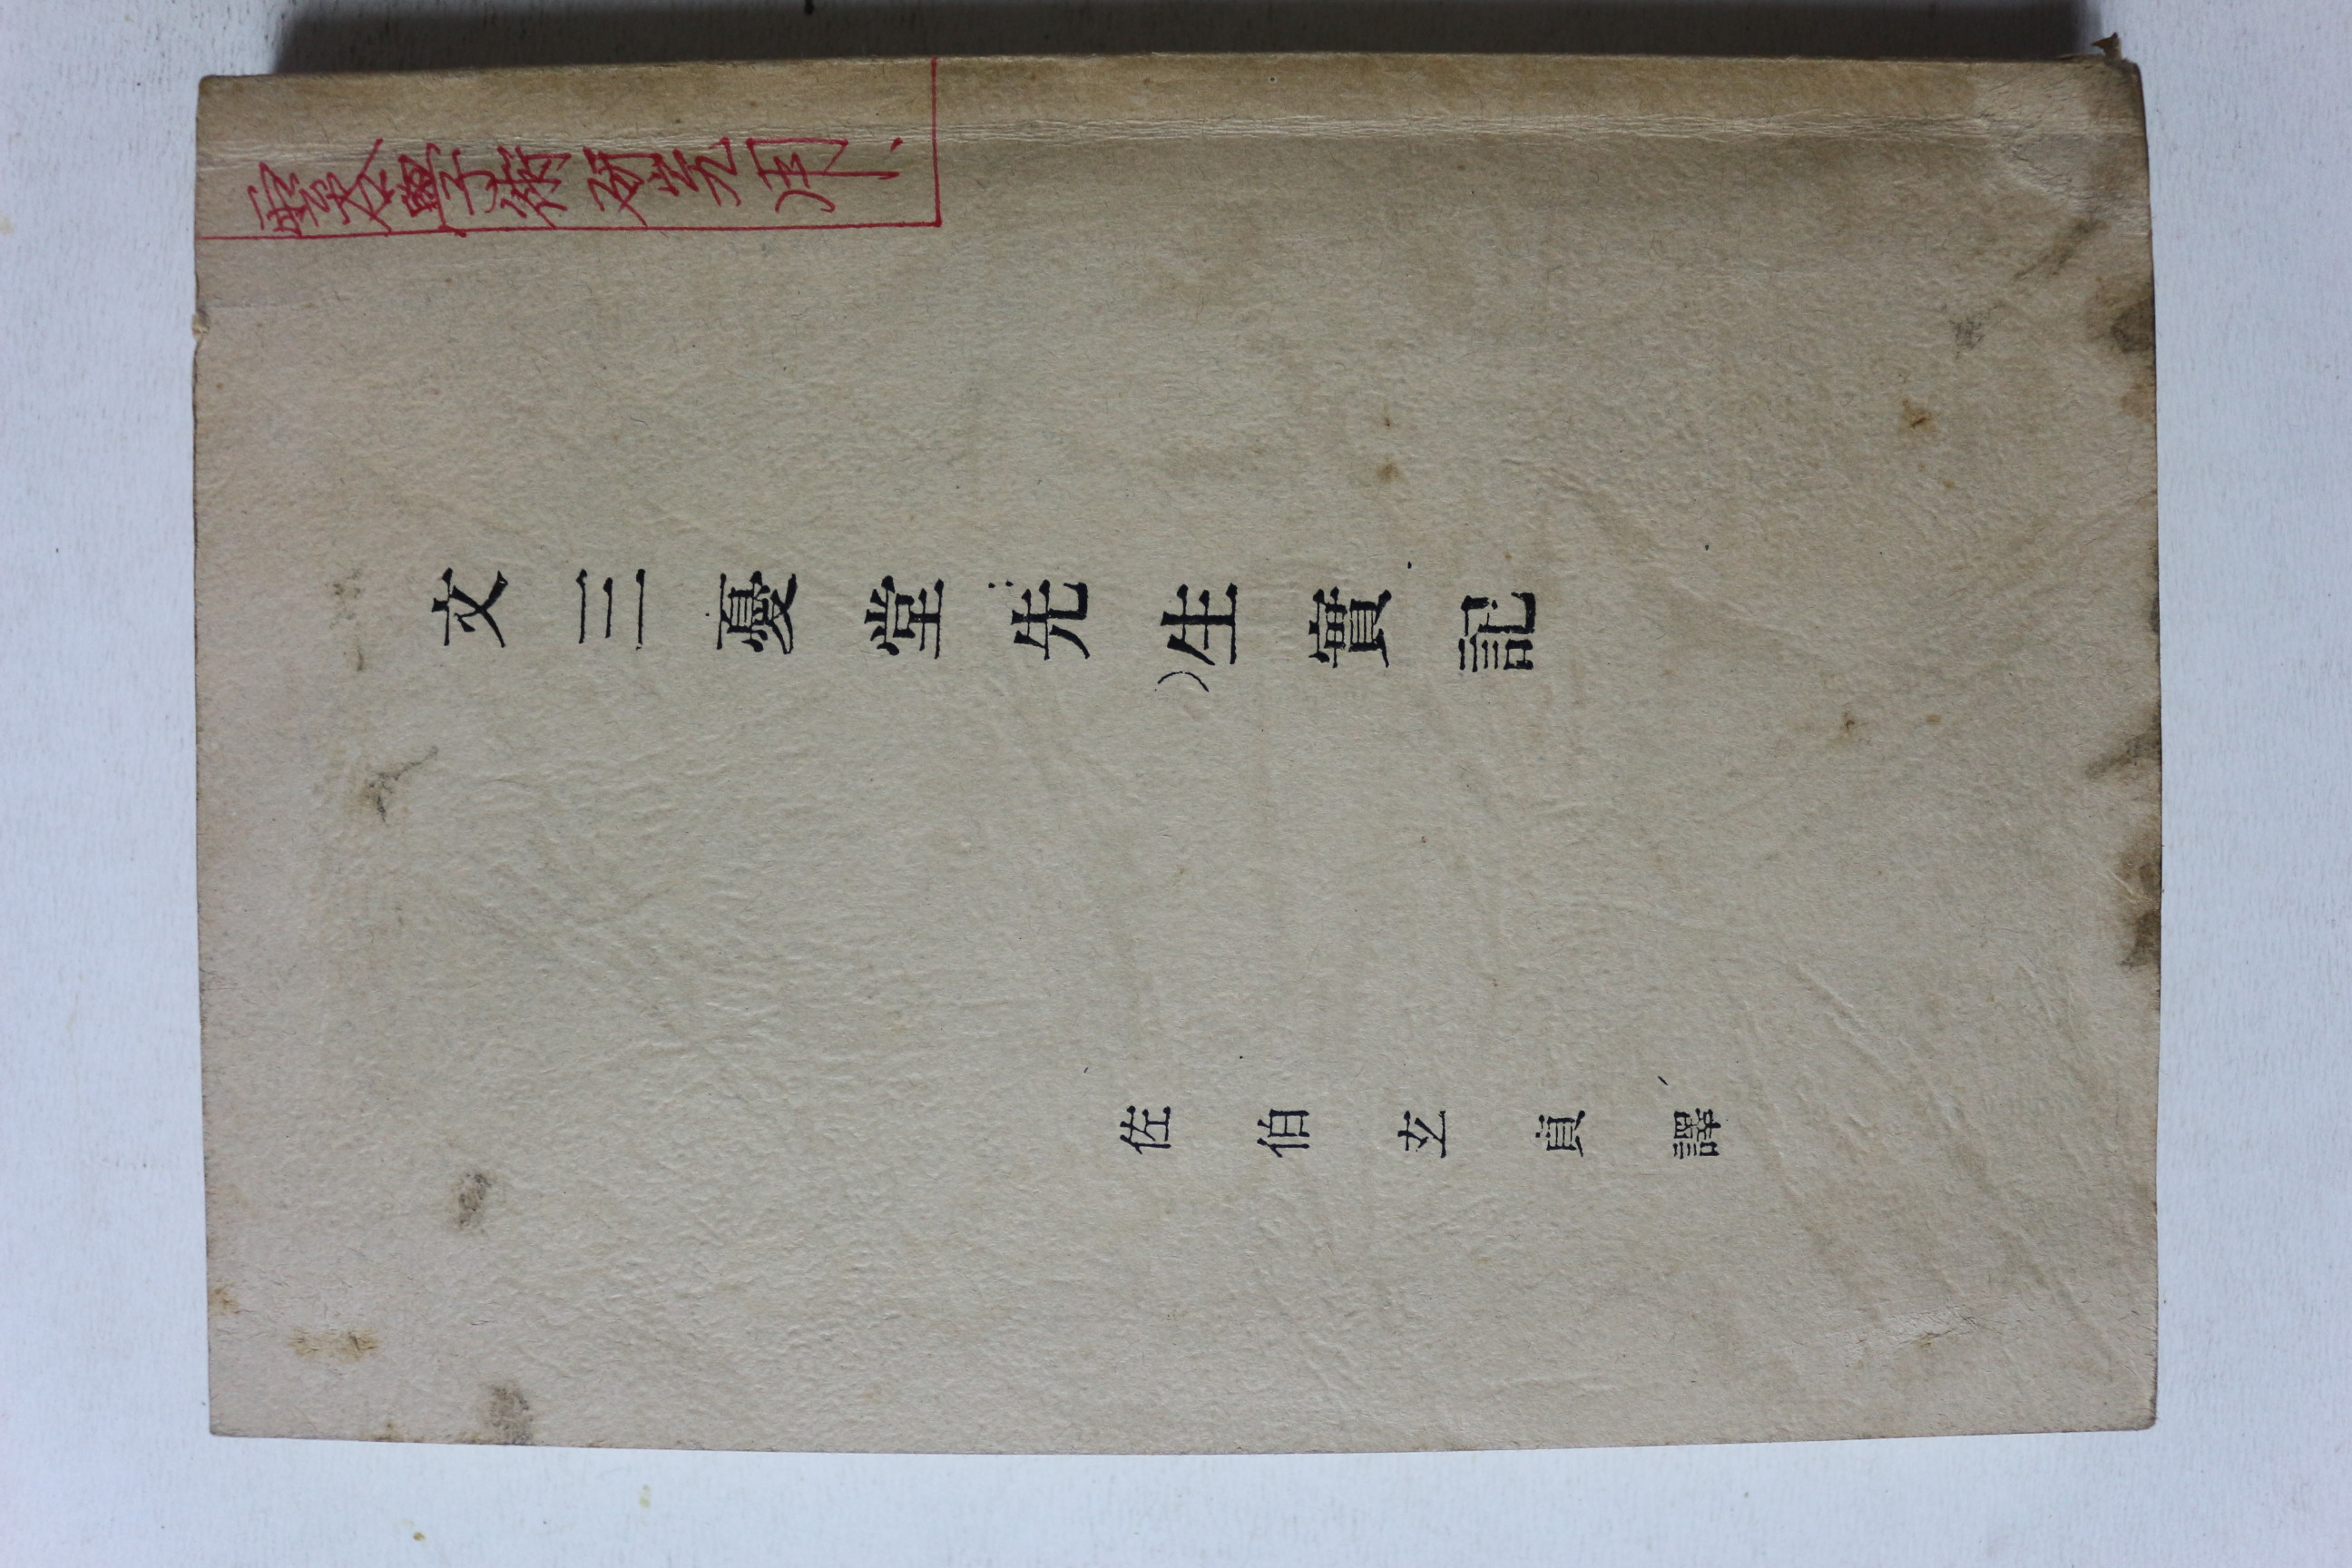 文三憂堂先生實記
佐伯立貞譯